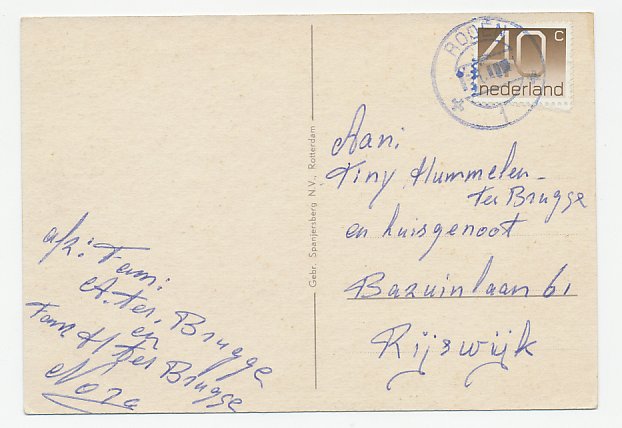 afz: Fam:
A. ter. Brugge
en
Fam H ter Brugge
Nora
Gebr. Spanjersberg N.V., Rotterdam
RODEN
1
40 c
nederland
Aan:
Tiny Hummelen-
Ter Brugge
en huisgenoot
Bazuinlaan 61
Rijswijk